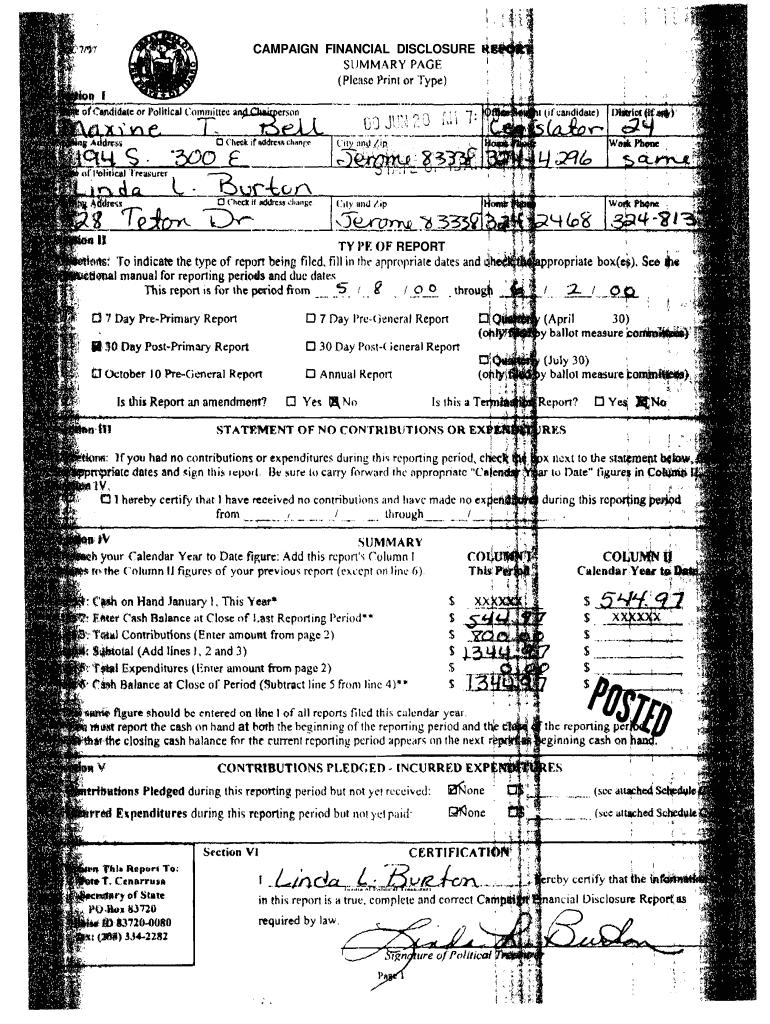 7/97
GREAT SEAL OF THE STATE OF IDAHO
CAMPAIGN FINANCIAL DISCLOSURE REPORT
SUMMARY PAGE
(Please Print or Type)
tion I
e of Candidate or Political Committee and Chairperson
Office Sought (if candidate) District (if any)
Maxine T. Bell 00 JUN 20 AM 7: Legislator 24
ng Address □ Check if address change City and Zip Home Phone Work Phone
194 S. 300 E Jerome 83338 324-4296 same
e of Political Treasurer
Linda L. Burton
ng Address □ Check if address change City and Zip Home Phone Work Phone
28 Teton Dr Jerome 83338 324-2468 324-813
on II TYPE OF REPORT
ctions: To indicate the type of report being filed, fill in the appropriate dates and check the appropriate box(es). See the
uctional manual for reporting periods and due dates
This report is for the period from 5 / 8 / 00 through 6 / 2 / 00
□ 7 Day Pre-Primary Report □ 7 Day Pre-General Report □ Quarterly (April 30)
(only filed by ballot measure committees)
☒ 30 Day Post-Primary Report □ 30 Day Post-General Report
□ Quarterly (July 30)
□ October 10 Pre-General Report □ Annual Report (only filed by ballot measure committees)
Is this Report an amendment? □ Yes ☒ No Is this a Termination Report? □ Yes ☒ No
on III STATEMENT OF NO CONTRIBUTIONS OR EXPENDITURES
ctions: If you had no contributions or expenditures during this reporting period, check the box next to the statement below,
appropriate dates and sign this report. Be sure to carry forward the appropriate "Calendar Year to Date" figures in Column II,
ion IV.
□ I hereby certify that I have received no contributions and have made no expenditures during this reporting period
from / / through / /
on IV SUMMARY
ach your Calendar Year to Date figure: Add this report's Column I COLUMN I COLUMN II
es to the Column II figures of your previous report (except on line 6). This Period Calendar Year to Date
1: Cash on Hand January 1, This Year* $ XXXXXX $ 544.97
2: Enter Cash Balance at Close of Last Reporting Period** $ 544.97 $ XXXXXX
3: Total Contributions (Enter amount from page 2) $ 800.00 $
4: Subtotal (Add lines 1, 2 and 3) $ 1344.97 $
5: Total Expenditures (Enter amount from page 2) $ 0.00 $
6: Cash Balance at Close of Period (Subtract line 5 from line 4)** $ 1344.97 $
POSTED
same figure should be entered on line 1 of all reports filed this calendar year.
ou must report the cash on hand at both the beginning of the reporting period and the close of the reporting period
that the closing cash balance for the current reporting period appears on the next report as beginning cash on hand.
on V CONTRIBUTIONS PLEDGED - INCURRED EXPENDITURES
ontributions Pledged during this reporting period but not yet received: ☒ None □ $ (see attached Schedule
urred Expenditures during this reporting period but not yet paid: ☒ None □ $ (see attached Schedule
Section VI CERTIFICATION
urn This Report To:
Pete T. Cenarrusa
Secretary of State
PO Box 83720
Boise ID 83720-0080
Fax: (208) 334-2282
I Linda L. Burton, hereby certify that the information
in this report is a true, complete and correct Campaign Financial Disclosure Report as
required by law.
Linda L. Burton
Signature of Political Treasurer
Page 1